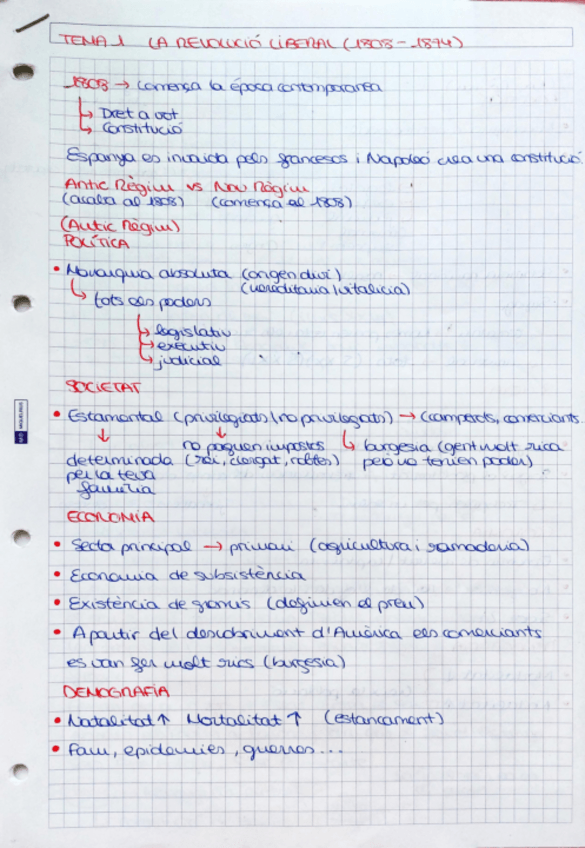 TEMA 1 LA REVOLUCIÓ LIBERAL (1808-1874)
1808 → comença la época contemporanea
Dret a vot
Constitució
Espanya es invaida pels francesos i Napoleó crea una constitució.
Antic Règim vs Nou Règim
(acaba al 1808) (comença el 1808)
(Antic Règim)
POLÍTICA
• Monarquia absoluta (origen diví)
(hereditaria/vitalicia)
tots els poders
legislatiu
executiu
judicial
SOCIETAT
• Estamental (privilegiats/no privilegiats) → (camperols, comerciants
no paguen impostos burgesia (gent molt rica
determinada (rei, clergat, nobles) però no tenien poder)
per la teva
família
ECONOMIA
• Sector principal → primari (agricultura i ramaderia)
• Economia de subsistència
• Existència de gremis (definien el preu)
• A partir del descobriment d'Amèrica els comerciants
es van fer molt rics (burgesia)
DEMOGRAFIA
• Natalitat ↑ Mortalitat ↑ (estancament)
• Fam, epidemies, guerres...
MIQUELRIUS